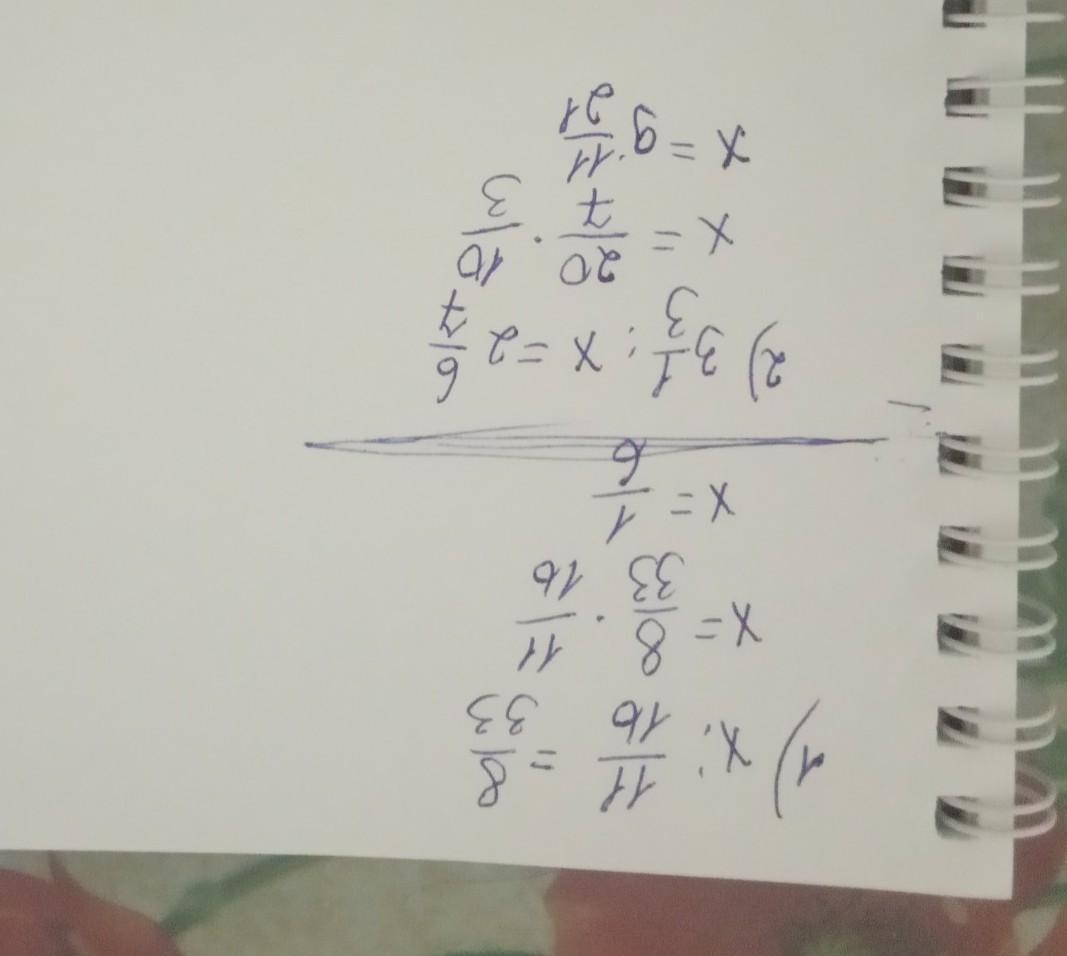 1) x : 11/16 = 8/33
x = 8/33 · 11/16
x = 1/6
2) 3 1/3 : x = 2 6/7
x = 20/7 · 10/3
x = 9 11/21